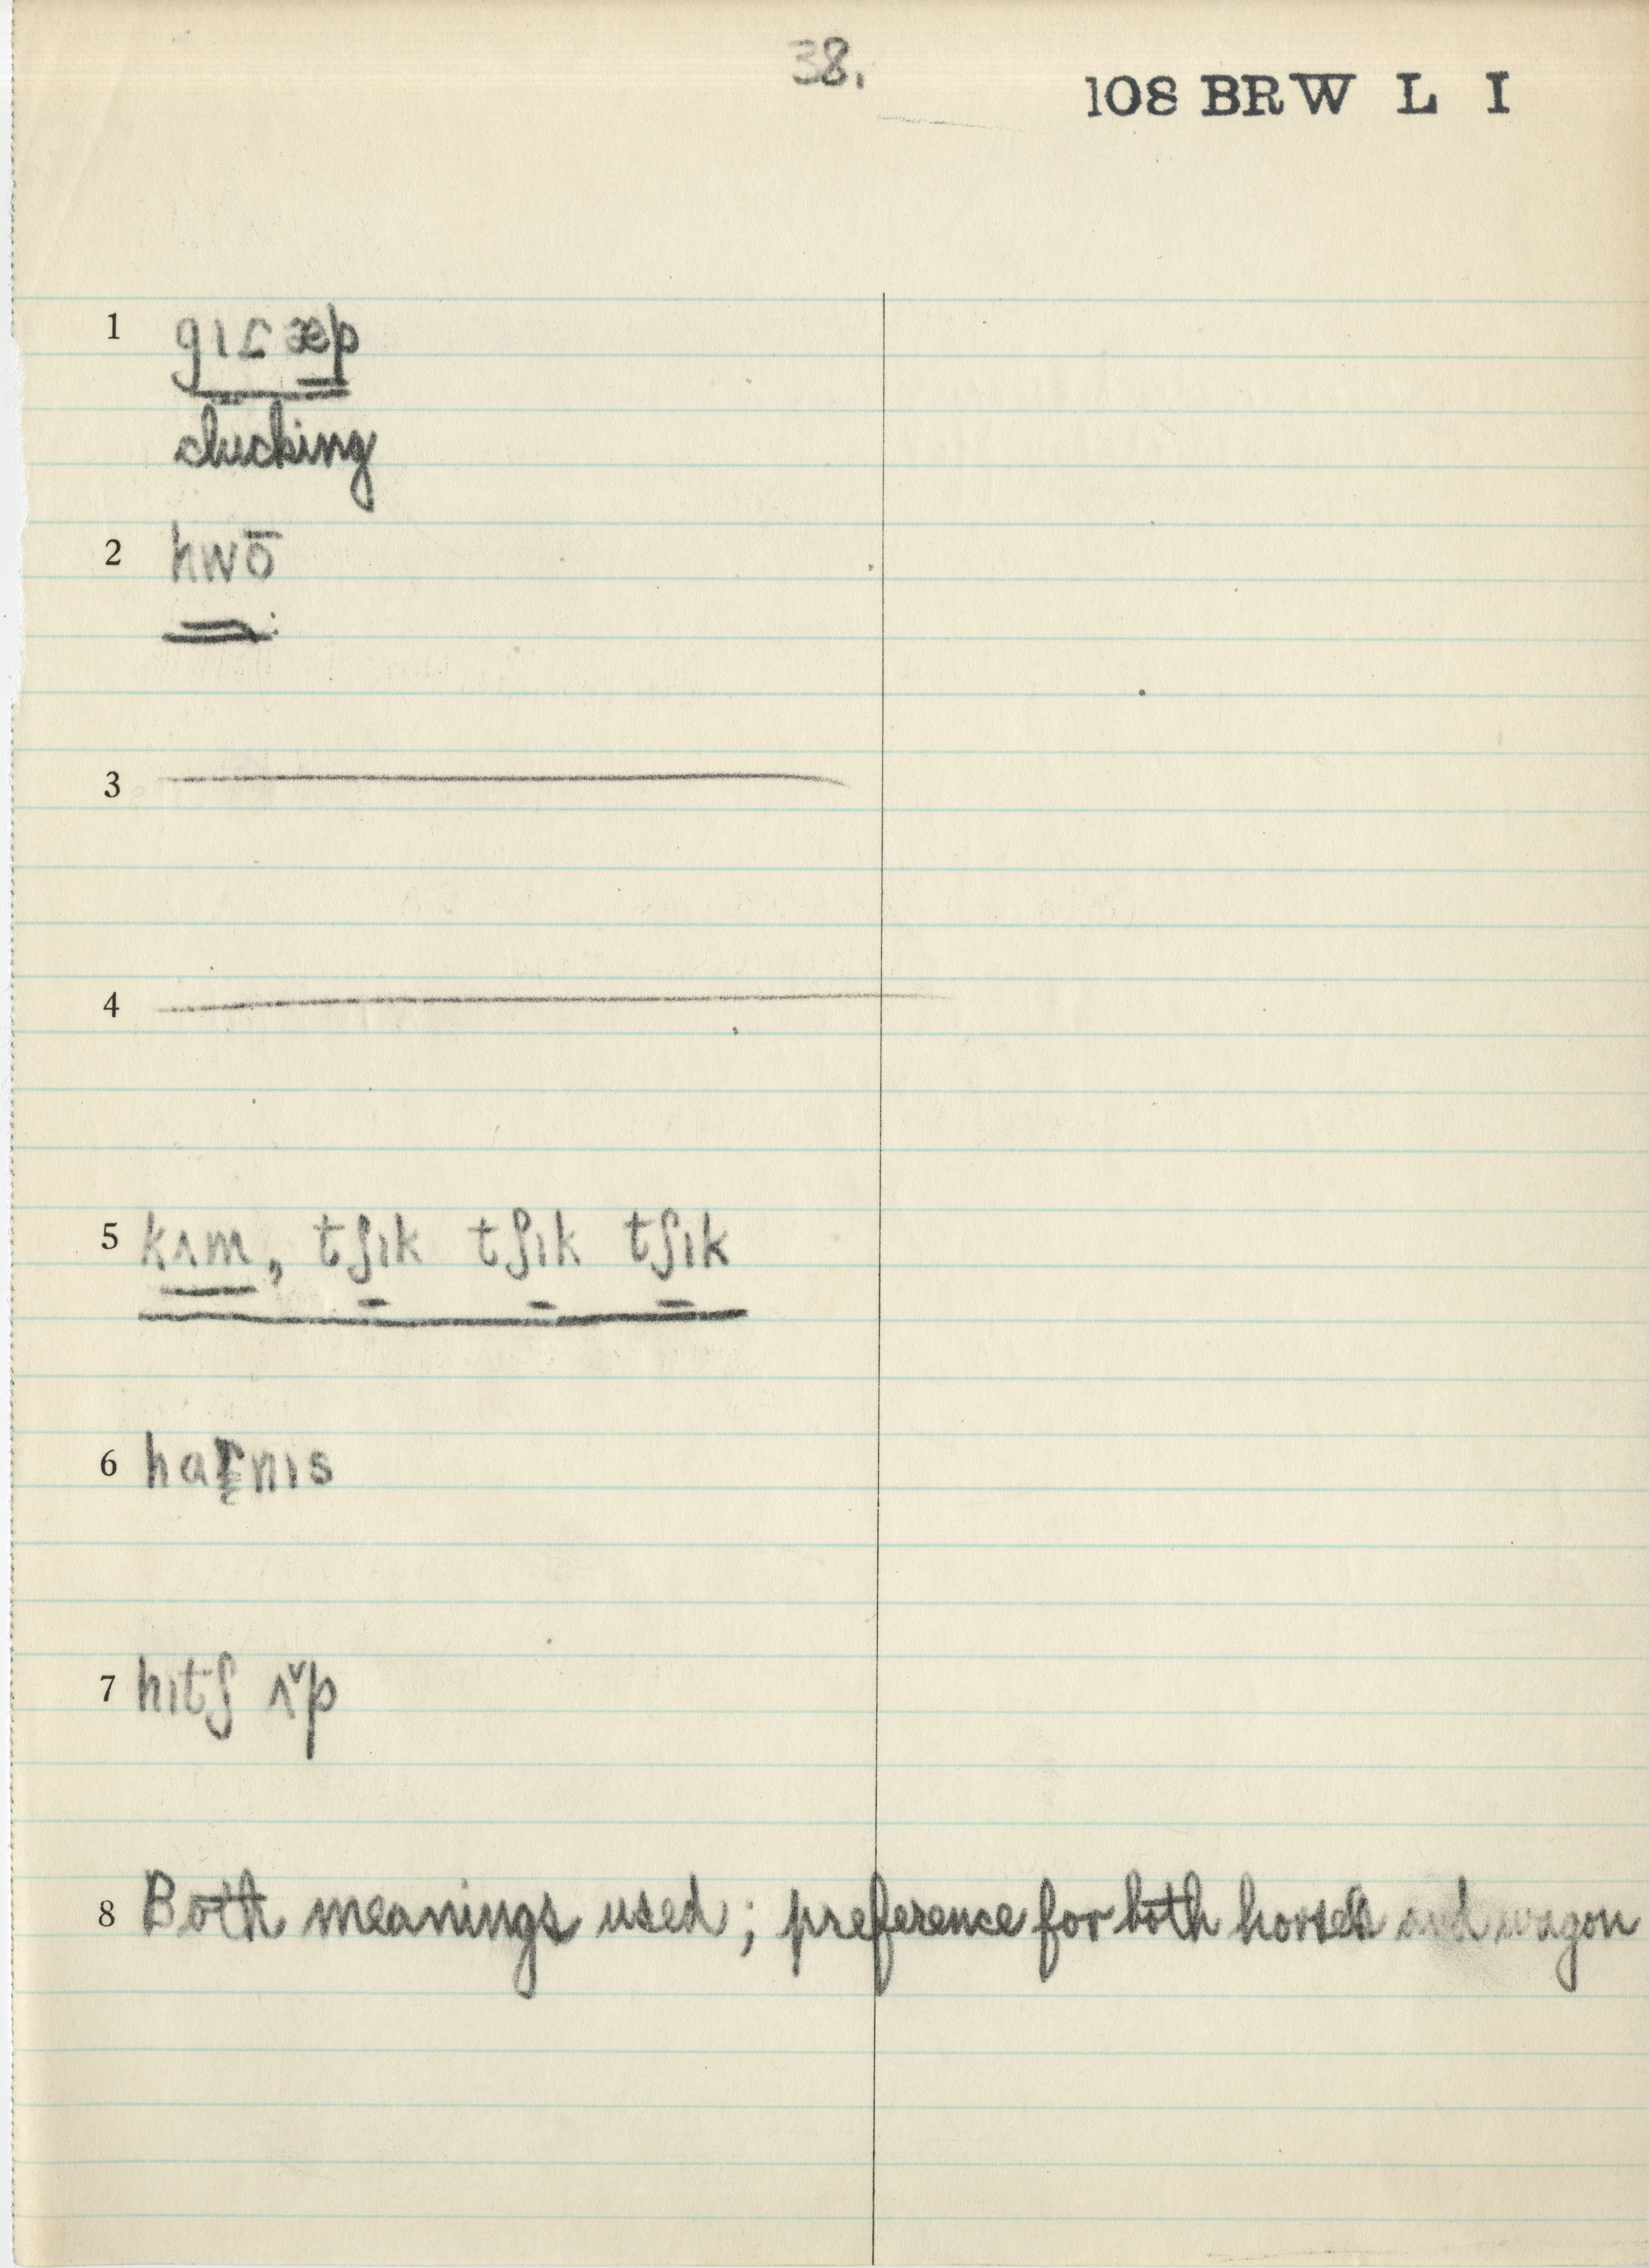 38.
108 BRW L I
1 gɪɾæp
clucking
2 hwō
3
4
5 kʌm, tʃɪk tʃɪk tʃɪk
6 haɾnɪs
7 hɪtʃ ʌˇp
8 Both meanings used; preference for both horses and wagon